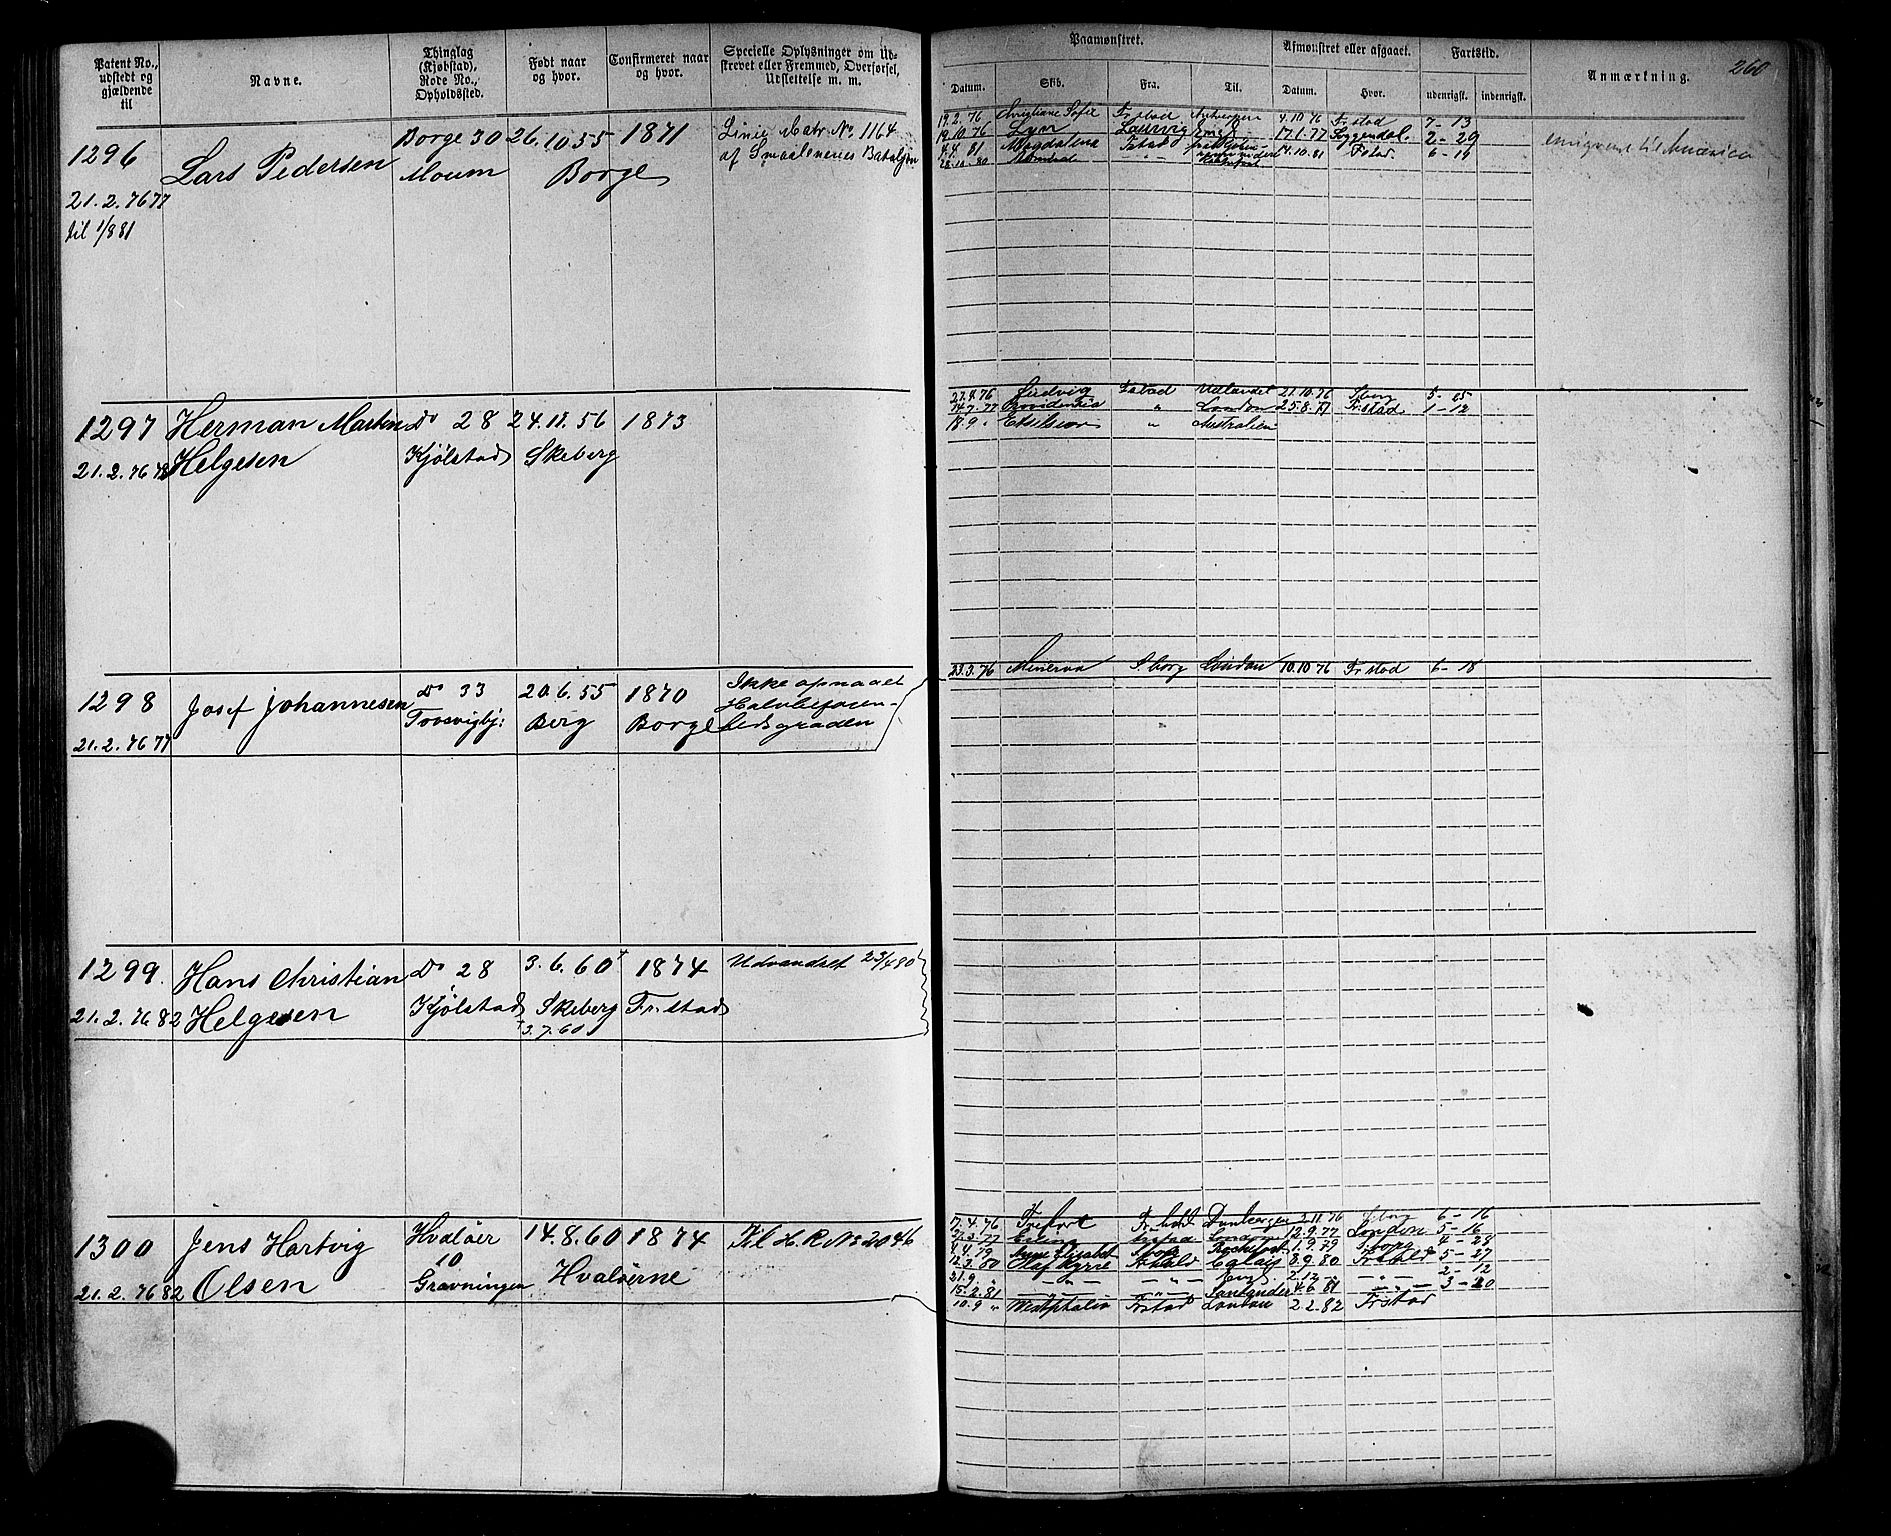 Patent No., udstedt og gjældende til
Navne.
Thinglag (Kjøbstad), Rode No., Opholdssted.
Født naar og hvor.
Confirmeret naar og hvor.
Specielle Oplysninger om Udskrevet eller Fremmed, Overførsel, Udslettelse m. m.
Paamønstret.
Datum.
Skib.
Fra.
Til.
Afmønstret eller afgaaet.
Datum.
Hvor.
Fartstid.
udenrigsk.
indenrigsk.
Anmærkning.
260
1296
21.2.76 77
til 1/8 81
Lars Pedersen
Borge 30
Moum
26.10.55
Borge
1871
Linie Matr No 1164
af Smaalenenes Bataljon
19.2.76 Christiane Sofie Fr stad Antwerpen 4.10 76 Fr stad 7-13
19.10.76 Lyn Laurvig 17.1.77 Soggendal. 2-29
4.4.81 Magdalena Fstad 14.10.81 Fstad. 6-11
28.10.80
emigreret til Amerika
1297
21.2.76 78
Herman Martin
Helgesen
Do 28
Kjølstad
24.11.56
Skeberg
1873
27.4.76 Fstad Udlandet 21.10.76 Sborg 5-25
14.7.77 Providentia " London 25.8.77 Fr.stad 1-12
18.9. " Exelsior " Australien
1298
21.2.76 77
Josef Johannesen
Do 33
Torsvigbj:
20.6.55
Berg
1870
Borge
Ikke opnaaet
Halvbefaren-
hedsgraden
23.3.76 Minerva S.borg London 10.10 76 Fr stad 6-18
1299.
21.2.76 82
Hans Christian
Helgesen
Do 28
Kjølstad
3.6.60
Skeberg
3.7.60
1874
Fr. stad
Udvandret 23/4 80
1300
21.2.76 82
Jens Hartvig
Olsen
Hvaløer
10
Gravningen
14.8.60
Hvaløerne
1874
Til H. R. No 2046
7.4.76 2.11.76 6-16
27.3.77 12.9.77 London 5-16
4.4.79 Anne Elisabet Sborg Rochefort 1.9.79 Sborg 4-28
12.3.80 Olaf Kyrre 8.9.80 5-27
21.9. " — " — — " — — " — 2-12
15.2.81 — " — — " — Santander 4.6 81 — " — 3-20
10.9 " Westphalia Frstad London 2.2.82 Frstad